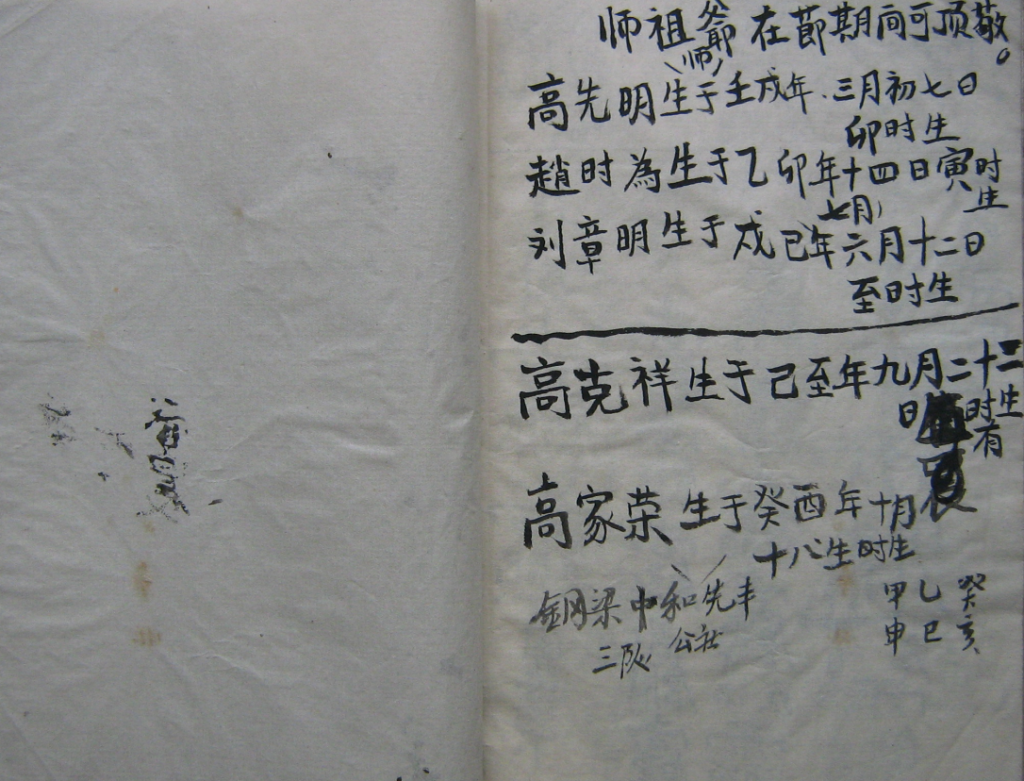 师祖爷在節期间可顶敬。
(师)
高先明生于壬戌年.三月初七日
卯时生
趙时為生于乙卯年十四日寅时生
七月)
刘章明生于戊已年六月十二日
至时生
高克祥生于己至年九月二十二
日 时生
有
高家荣生于癸酉年十月
十八生时生
钢梁中和先丰
公社
三队
甲 乙 癸
申 巳 亥